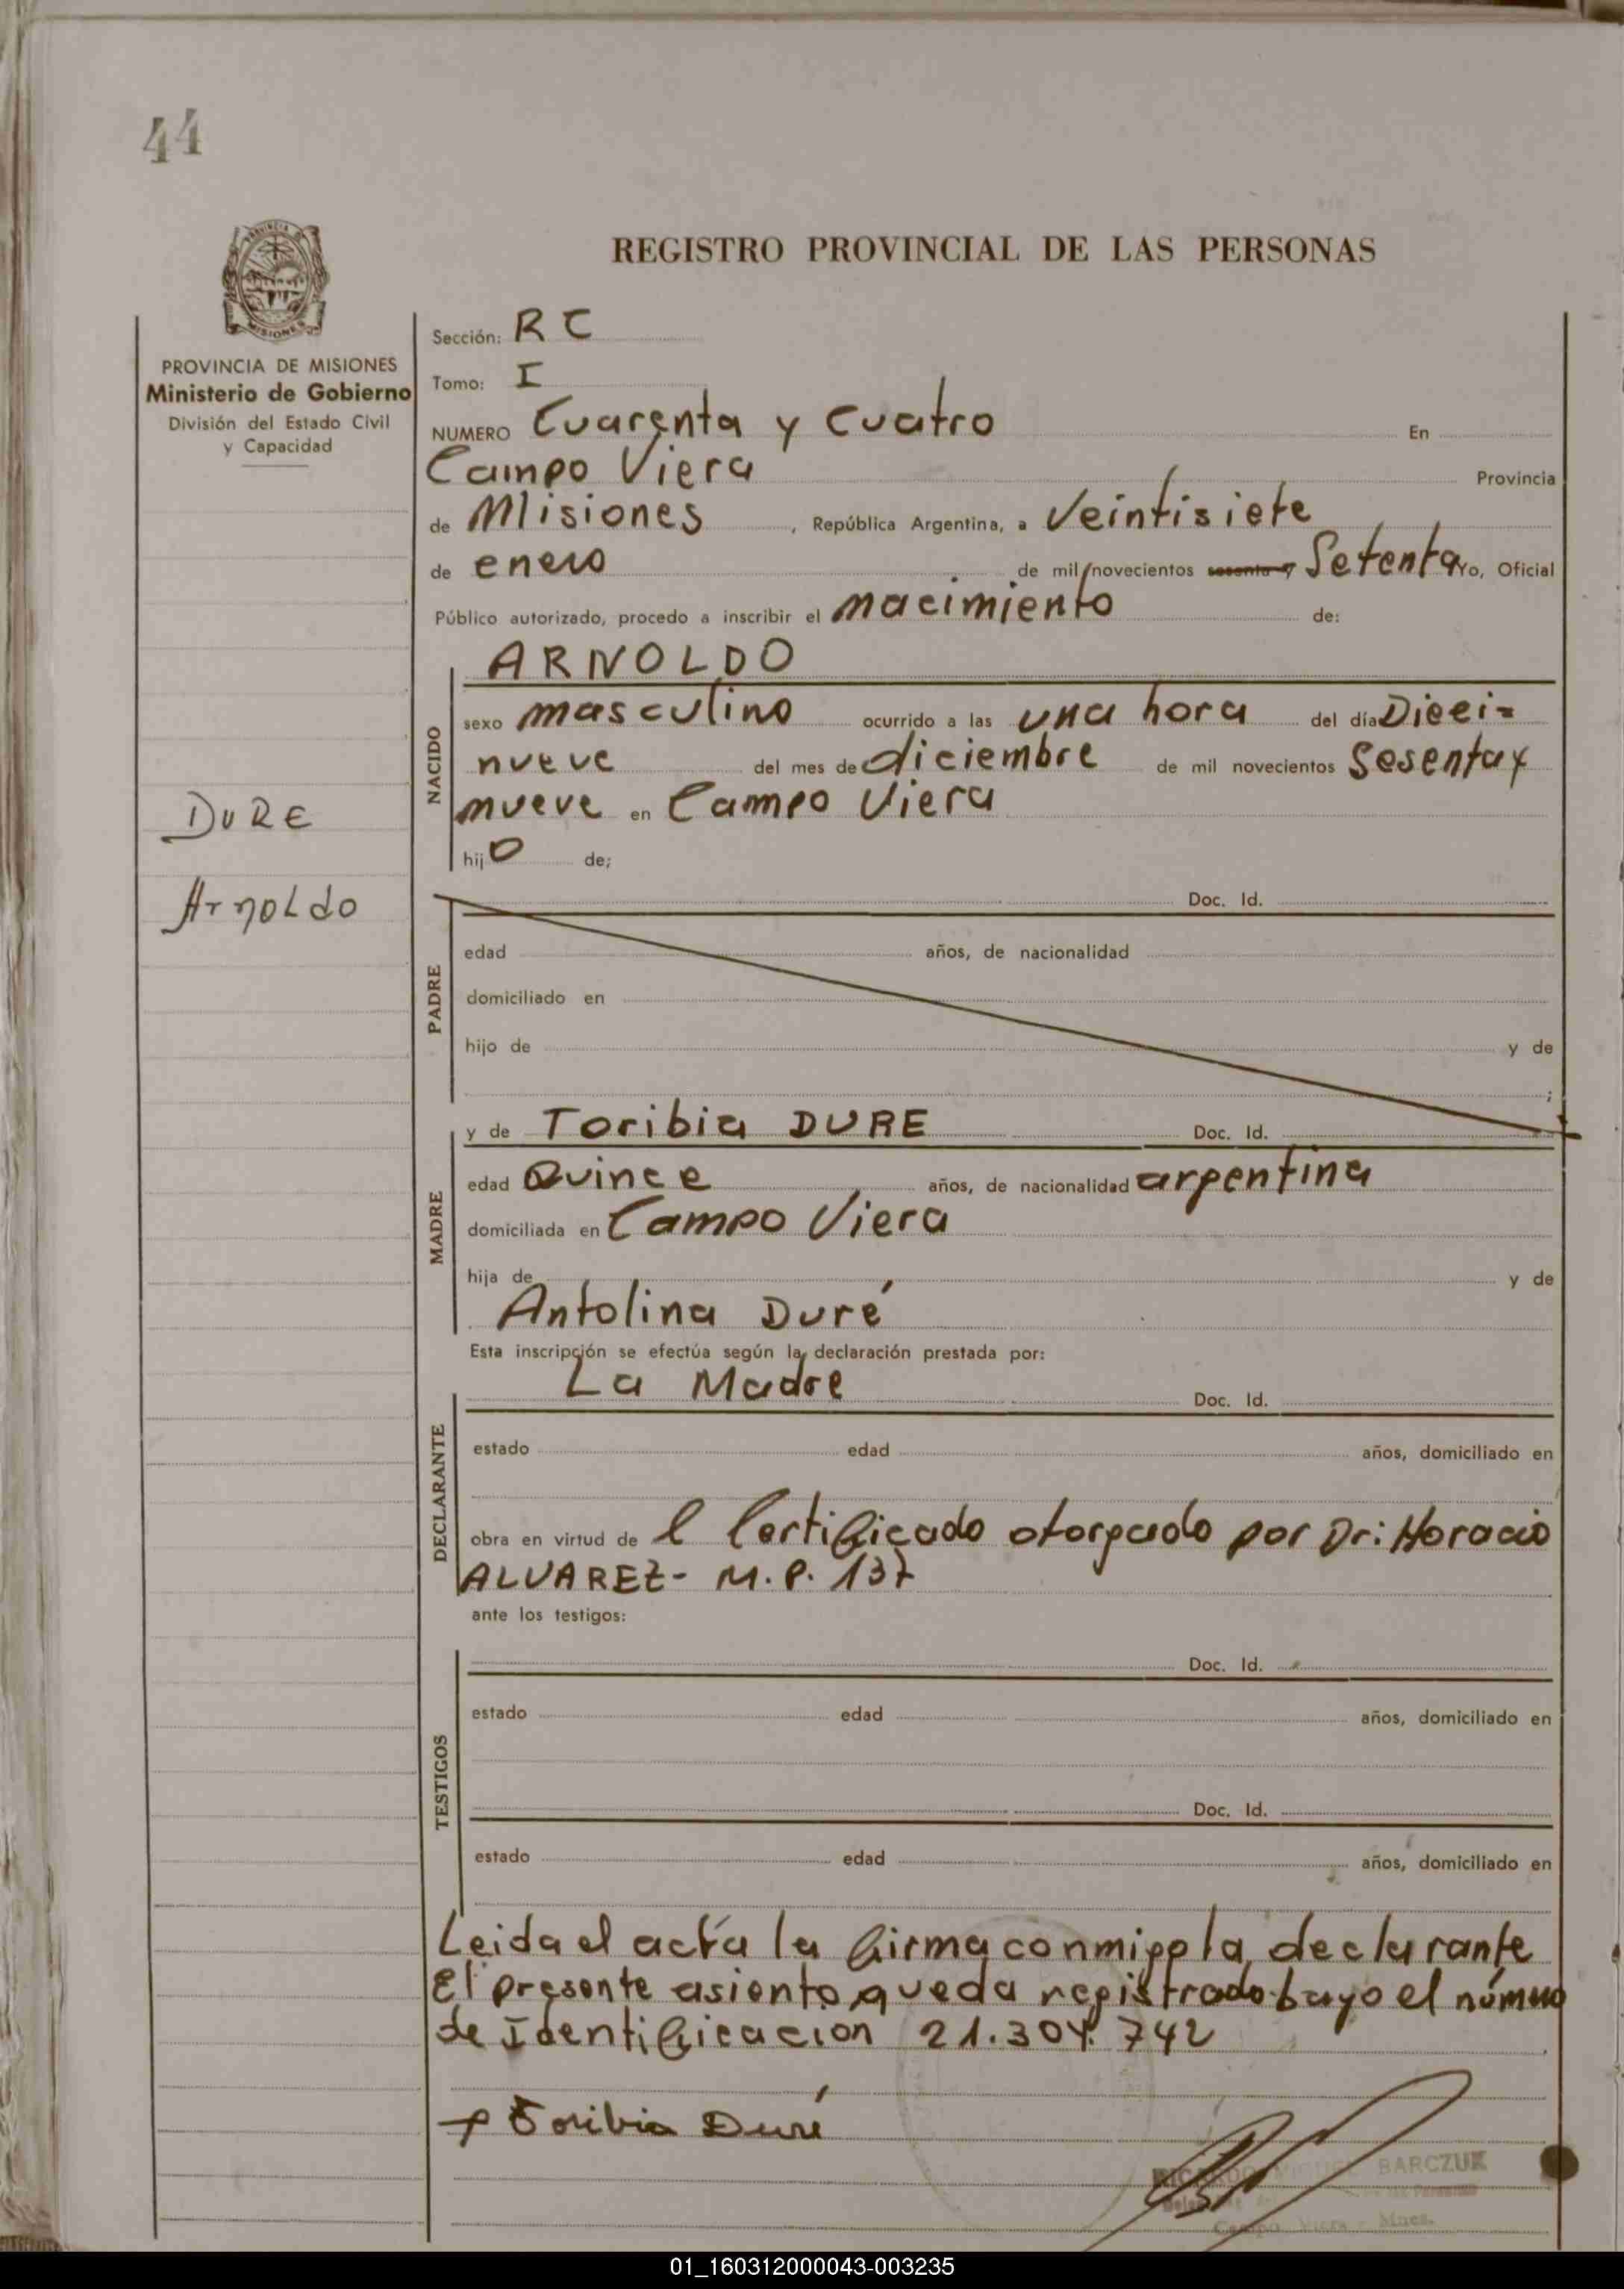 44
REGISTRO PROVINCIAL DE LAS PERSONAS
PROVINCIA DE MISIONES
Ministerio de Gobierno
División del Estado Civil
y Capacidad
Sección: R C
Tomo: I
NUMERO Cuarenta y Cuatro En
Campo Viera Provincia
de Misiones, República Argentina, a Veintisiete
de enero de mil novecientos sesenta y Setenta Yo, Oficial
Público autorizado, procedo a inscribir el nacimiento de:
ARNOLDO
NACIDO
sexo masculino ocurrido a las una hora del día Dieci=
nueve del mes de diciembre de mil novecientos Sesenta y
nueve en Campo Viera
hijo de;
DURE
Arnoldo
PADRE
Doc. Id.
edad años, de nacionalidad
domiciliado en
hijo de y de
;
MADRE
y de Toribia DURE Doc. Id.
edad Quince años, de nacionalidad argentina
domiciliada en Campo Viera
hija de y de
Antolina Duré
Esta inscripción se efectúa según la declaración prestada por:
DECLARANTE
La Madre Doc. Id.
estado edad años, domiciliado en
obra en virtud de l Certificado otorgado por Dr: Horacio
ALVAREZ- M.P. 137
ante los testigos:
TESTIGOS
Doc. Id.
estado edad años, domiciliado en
Doc. Id.
estado edad años, domiciliado en
Leida el acta la firma conmigo la declarante
El presente asiento queda registrado bayo el número
de Identificacion 21.304.742
Toribia Duré
RICARDO MIGUEL BARCZUK
Campo Viera - Mnes.
01_160312000043-003235